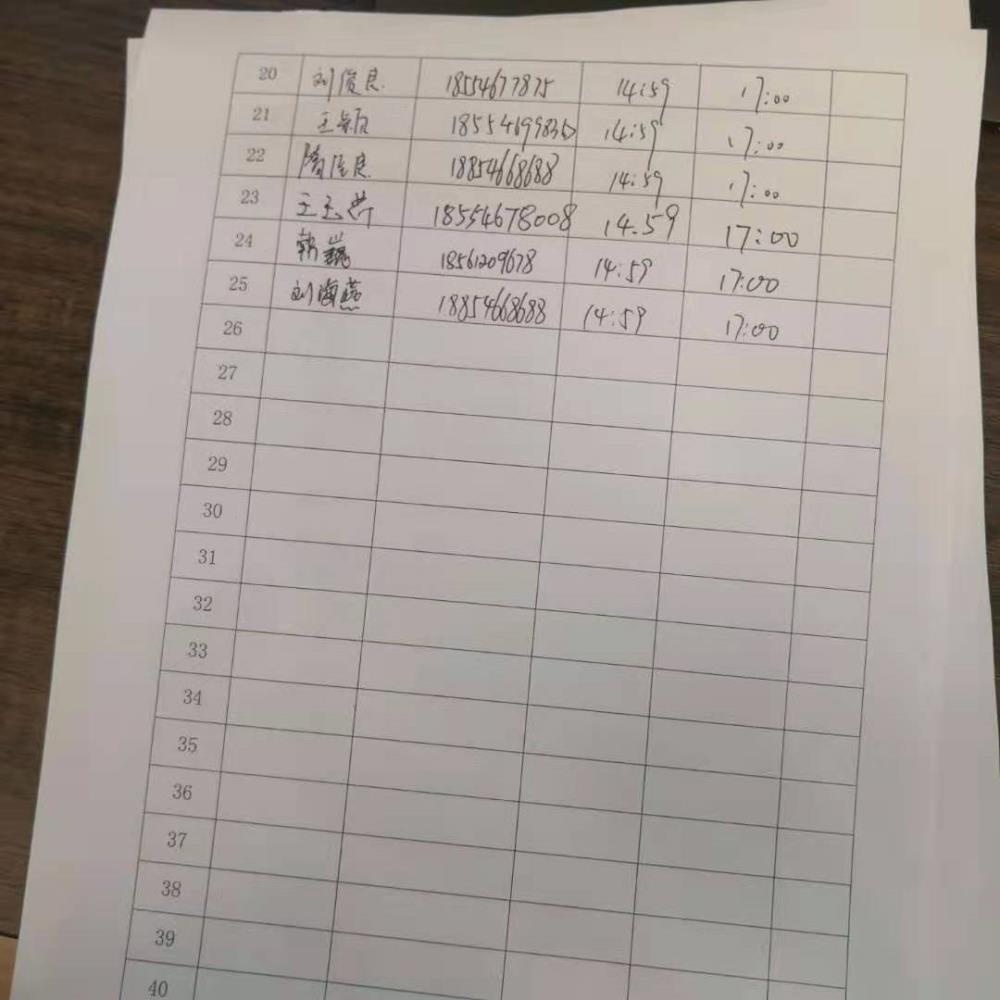 20 刘俊良 18554677875 14:59 17:00
21 王颖 18554699836 14:59 17:00
22 隋俊良 18854668688 14:59 17:00
23 王玉 18554678008 14.59 17:00
24 韩巍 18561209678 14:59 17:00
25 刘海燕 18854668688 14:59 17:00
26
27
28
29
30
31
32
33
34
35
36
37
38
39
40